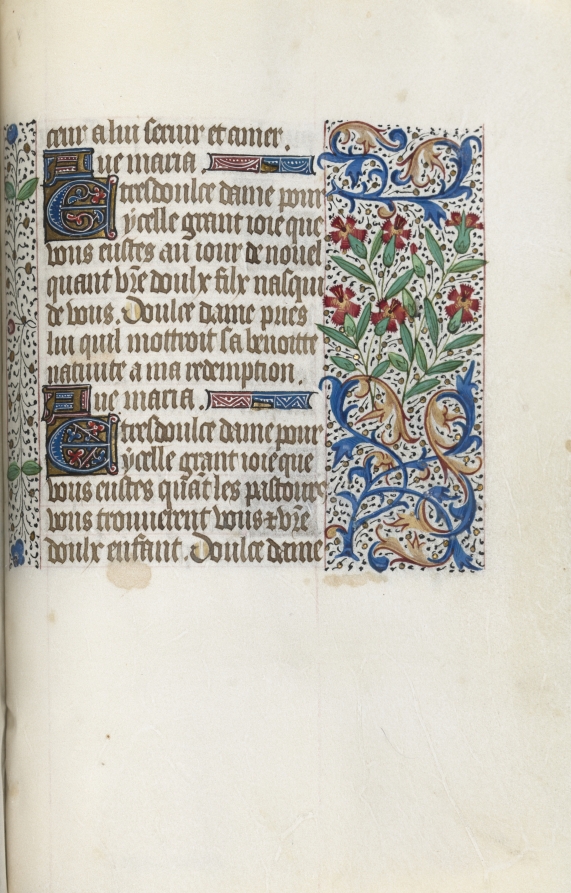 cœur a lui seruir et amer.
Aue maria
E tresdoulce dame pour
ycelle grant ioie que
vous eustes au iour de nouel
quant vr̄e doulx filx nasqui
de vous. Doulce dame pries
lui quil mottroit sa benoitte
natiuite a ma redemption.
Aue maria.
E tresdoulce dame pour
ycelle grant ioie que
vous eustes quāt les pastoure
vous trouuerent vous ⁊ vr̄e
doulx enfant. Doulce dame